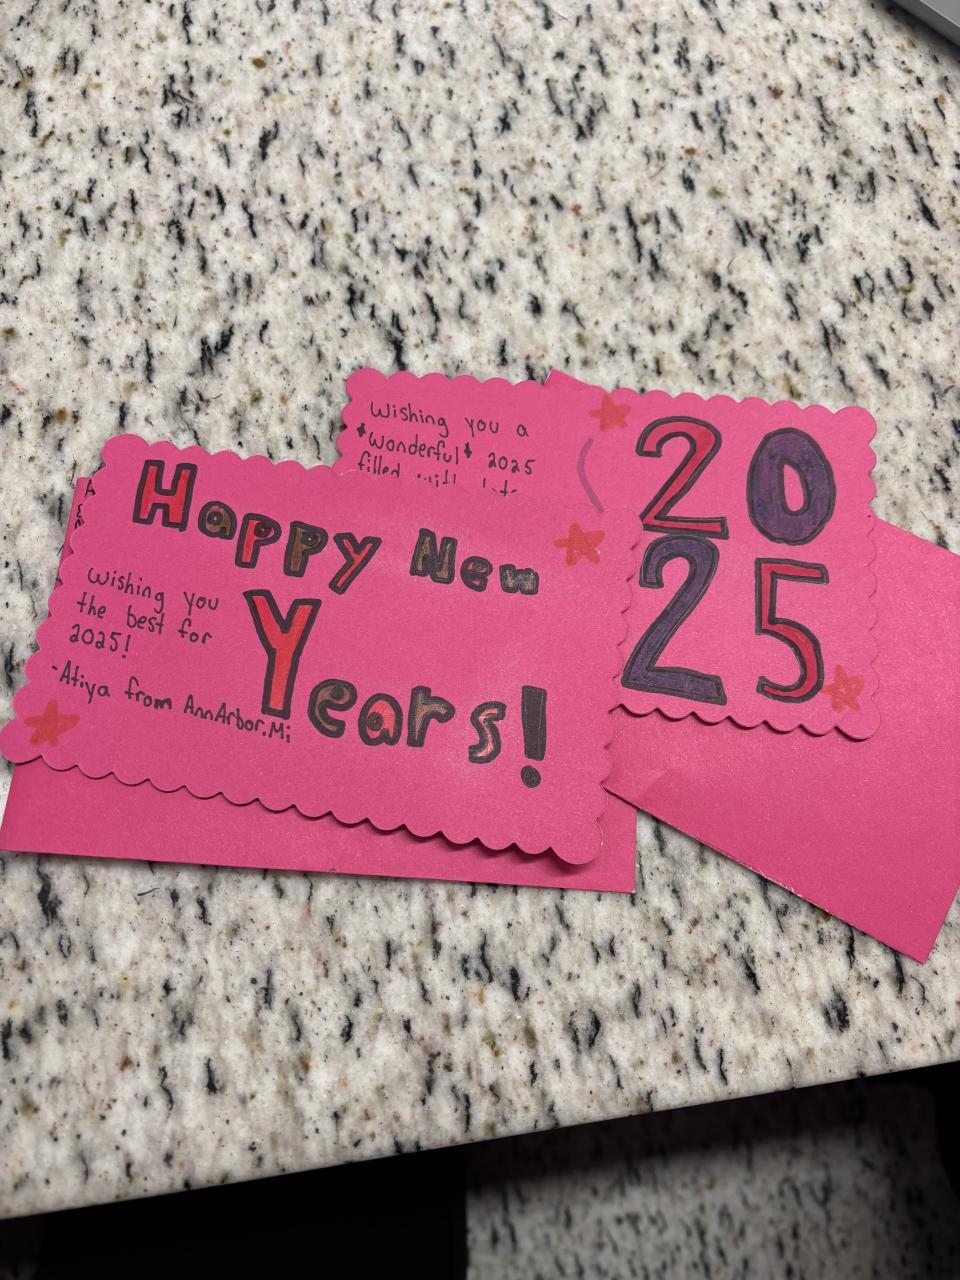 Happy New
Years!
Wishing you
the best for
2025!
-Atiya from AnnArbor.Mi
Wishing you a
Wonderful 2025
filled with lots
20
25